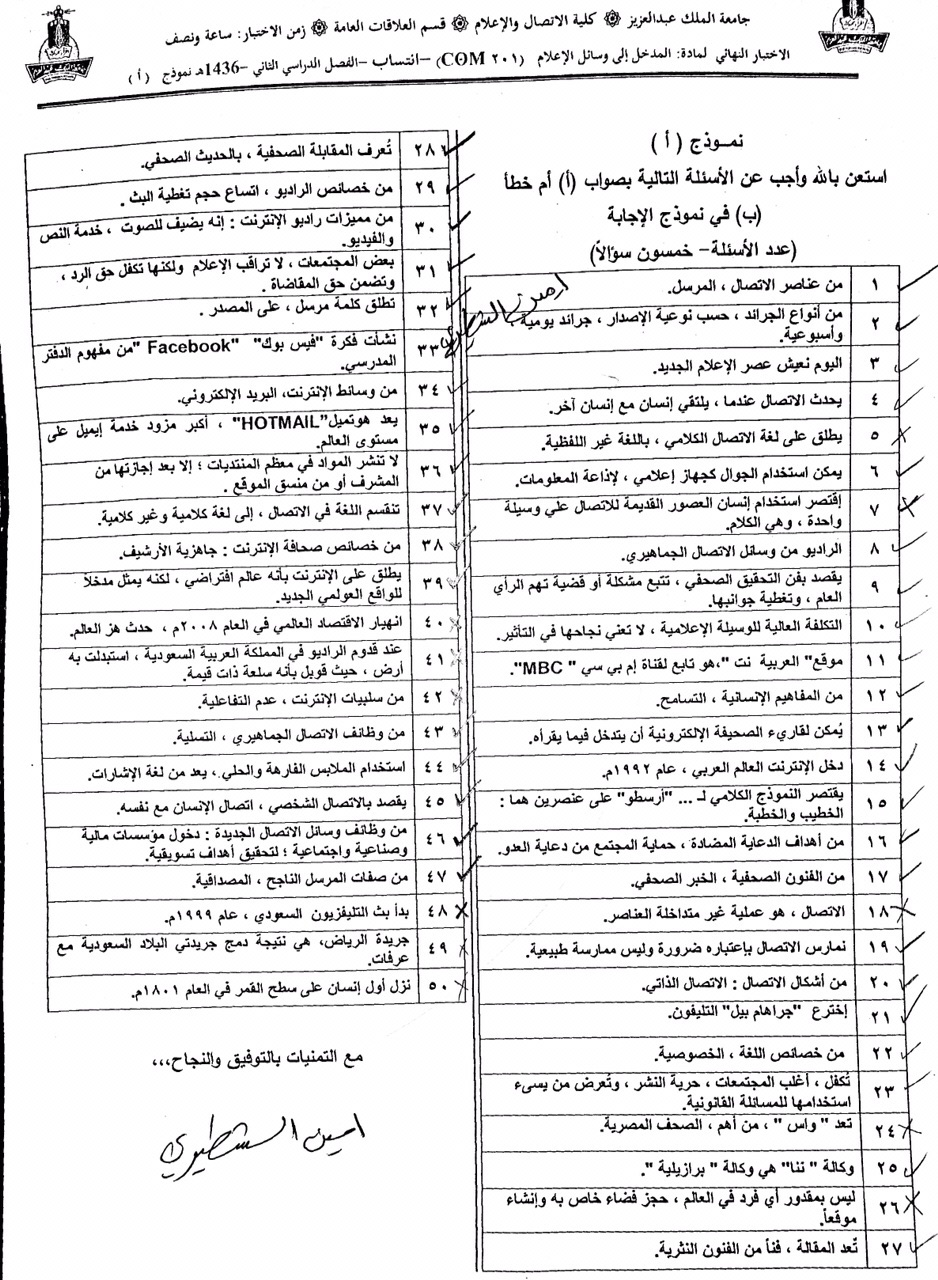 جامعة الملك عبدالعزيز ۞ كلية الاتصال والإعلام ۞ قسم العلاقات العامة ۞ زمن الاختبار: ساعة ونصف
الاختبار النهائي لمادة: المدخل إلى وسائل الإعلام (COM ٢٠١) –انتساب –الفصل الدراسي الثاني –1436هـ نموذج (أ)
نموذج (أ)
استعن بالله وأجب عن الأسئلة التالية بصواب (أ) أم خطأ
(ب) في نموذج الإجابة
(عدد الأسئلة– خمسون سؤالاً)
١ من عناصر الاتصال ، المرسل.
٢ من أنواع الجرائد ، حسب نوعية الإصدار ، جرائد يومية
وأسبوعية.
٣ اليوم نعيش عصر الإعلام الجديد.
٤ يحدث الاتصال عندما ، يلتقي إنسان مع إنسان آخر.
٥ يطلق على لغة الاتصال الكلامي ، باللغة غير اللفظية.
٦ يمكن استخدام الجوال كجهاز إعلامي ، لإذاعة المعلومات.
٧ إقتصر استخدام إنسان العصور القديمة للاتصال علي وسيلة
واحدة ، وهي الكلام.
٨ الراديو من وسائل الاتصال الجماهيري.
٩ يقصد بفن التحقيق الصحفي ، تتبع مشكلة أو قضية تهم الرأي
العام ، وتغطية جوانبها.
١٠ التكلفة العالية للوسيلة الإعلامية ، لا تعني نجاحها في التأثير.
١١ موقع" العربية نت "،هو تابع لقناة إم بي سي " MBC".
١٢ من المفاهيم الإنسانية ، التسامح.
١٣ يُمكن لقاريء الصحيفة الإلكترونية أن يتدخل فيما يقرأه.
١٤ دخل الإنترنت العالم العربي ، عام ١٩٩٢م.
١٥ يقتصر النموذج الكلامي لـ ... "أرسطو" على عنصرين هما :
الخطيب والخطبة.
١٦ من أهداف الدعاية المضادة ، حماية المجتمع من دعاية العدو.
١٧ من الفنون الصحفية ، الخبر الصحفي.
١٨ الاتصال ، هو عملية غير متداخلة العناصر.
١٩ نمارس الاتصال بإعتباره ضرورة وليس ممارسة طبيعية.
٢٠ من أشكال الاتصال : الاتصال الذاتي.
٢١ إخترع "جراهام بيل" التليفون.
٢٢ من خصائص اللغة ، الخصوصية.
٢٣ تُكفل ، أغلب المجتمعات ، حرية النشر ، وتُعرض من يسىء
استخدامها للمسائلة القانونية.
٢٤ تعد " واس " ، من أهم ، الصحف المصرية.
٢٥ وكالة " تنا" هي وكالة " برازيلية ".
٢٦ ليس بمقدور أي فرد في العالم ، حجز فضاء خاص به وإنشاء
موقعاً.
٢٧ تُعد المقالة ، فناً من الفنون النثرية.
٢٨ تُعرف المقابلة الصحفية ، بالحديث الصحفي.
٢٩ من خصائص الراديو ، اتساع حجم تغطية البث .
٣٠ من مميزات راديو الإنترنت : إنه يضيف للصوت ، خدمة النص
والفيديو.
٣١ بعض المجتمعات ، لا تراقب الإعلام ولكنها تكفل حق الرد ،
وتضمن حق المقاضاة .
٣٢ تطلق كلمة مرسل ، على المصدر .
٣٣ نشأت فكرة "فيس بوك" "Facebook "من مفهوم الدفتر
المدرسي.
٣٤ من وسائط الإنترنت، البريد الإلكتروني.
٣٥ يعد هوتميل"HOTMAIL" ، أكبر مزود خدمة إيميل على
مستوى العالم.
٣٦ لا تنشر المواد في معظم المنتديات ؛ إلا بعد إجازتها من
المشرف أو من منسق الموقع .
٣٧ تنقسم اللغة في الاتصال ، إلى لغة كلامية وغير كلامية.
٣٨ من خصائص صحافة الإنترنت : جاهزية الأرشيف.
٣٩ يطلق على الإنترنت بأنه عالم افتراضي ، لكنه يمثل مدخلاً
للواقع العولمي الجديد.
٤٠ انهيار الاقتصاد العالمي في العام ٢٠٠٨م ، حدث هز العالم.
٤١ عند قدوم الراديو في المملكة العربية السعودية ، استبدلت به
أرض ، حيث قوبل بأنه سلعة ذات قيمة.
٤٢ من سلبيات الإنترنت ، عدم التفاعلية.
٤٣ من وظائف الاتصال الجماهيري ، التسلية.
٤٤ استخدام الملابس الفارهة والحلي ، يعد من لغة الإشارات.
٤٥ يقصد بالاتصال الشخصي ، اتصال الإنسان مع نفسه.
٤٦ من وظائف وسائل الاتصال الجديدة : دخول مؤسسات مالية
وصناعية واجتماعية ؛ لتحقيق أهداف تسويقية.
٤٧ من صفات المرسل الناجح ، المصداقية.
٤٨ بدأ بث التليفزيون السعودي ، عام ١٩٩٩م.
٤٩ جريدة الرياض، هي نتيجة دمج جريدتي البلاد السعودية مع
عرفات.
٥٠ نزل أول إنسان على سطح القمر في العام ١٨٠١م.
مع التمنيات بالتوفيق والنجاح،،،